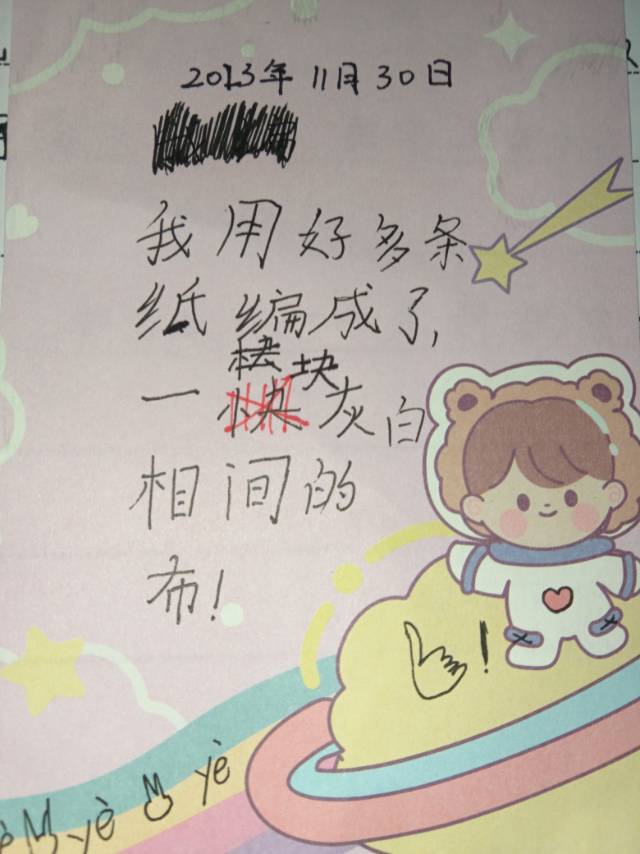 2013年 11月 30日
我用好多条
纸编成了,
块
一灰白
相间的
布!
!
yè yè